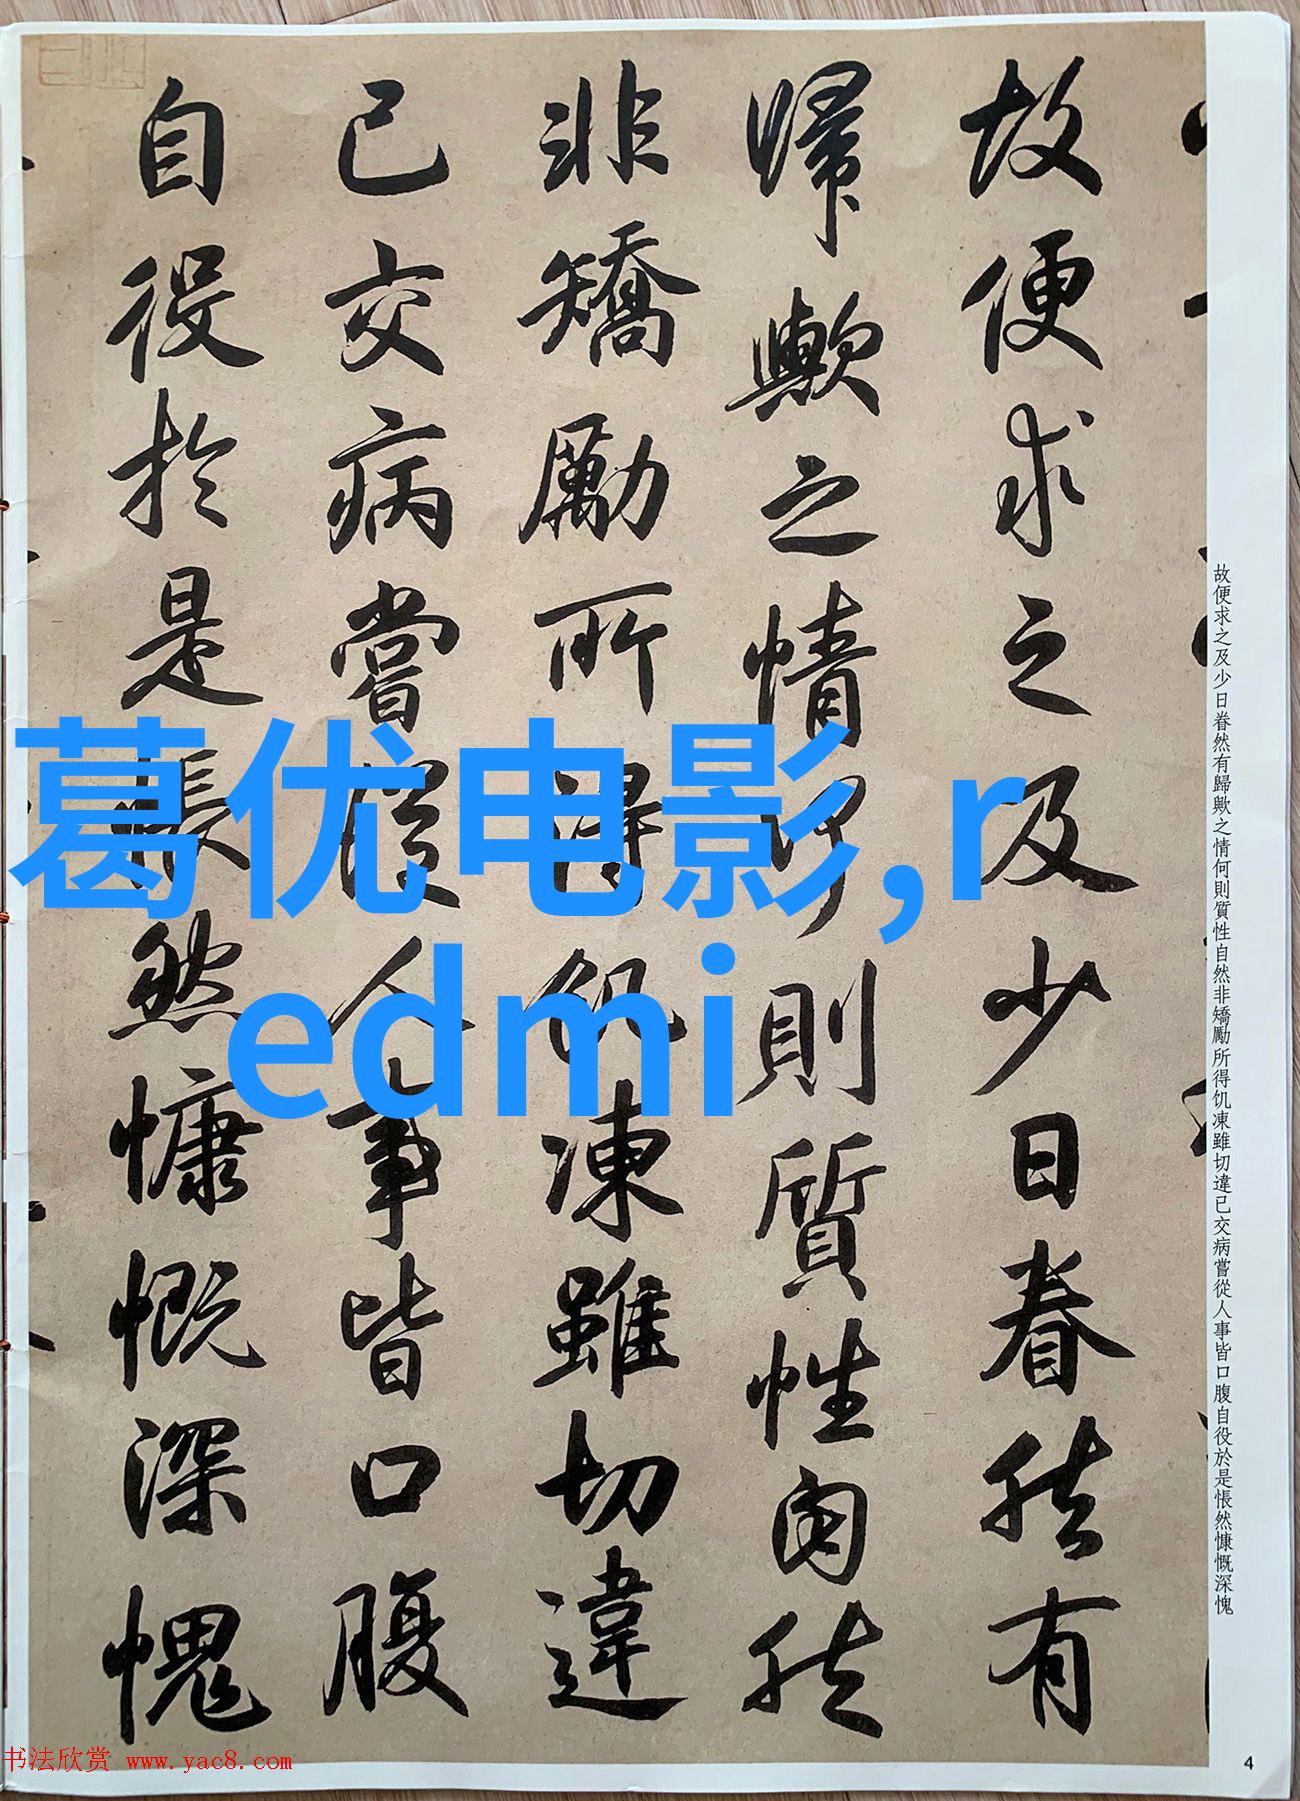 故便求之及少日眷然有
歸歟之情何則質性自然
非矯勵所得飢凍雖切違
已交病嘗從人事皆口腹
自役於是悵然慷慨深愧
故便求之及少日眷然有歸歟之情何則質性自然非矯勵所得饥凍雖切違已交病嘗從人事皆口腹自役於是悵然慷慨深愧
葛优电影,r
edmi
书法欣赏 www.yac8.com
4